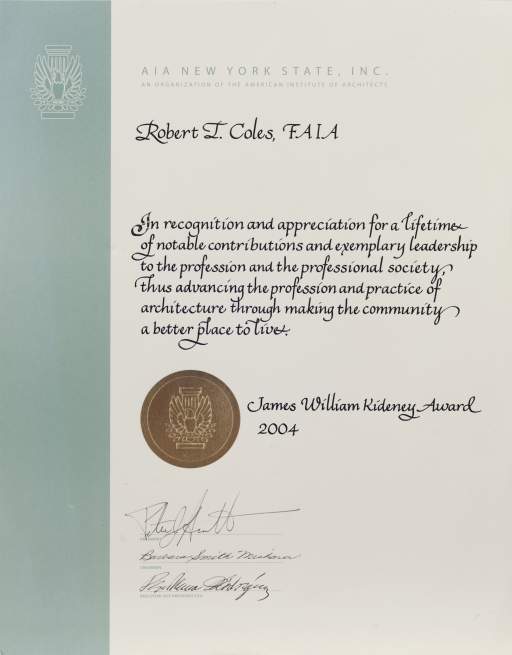 AIA NEW YORK STATE, INC.
AN ORGANIZATION OF THE AMERICAN INSTITUTE OF ARCHITECTS
Robert T. Coles, FAIA
In recognition and appreciation for a lifetime
of notable contributions and exemplary leadership
to the profession and the professional society,
thus advancing the profession and practice of
architecture through making the community
a better place to live.
James William Kideney Award
2004
Barbara Smith